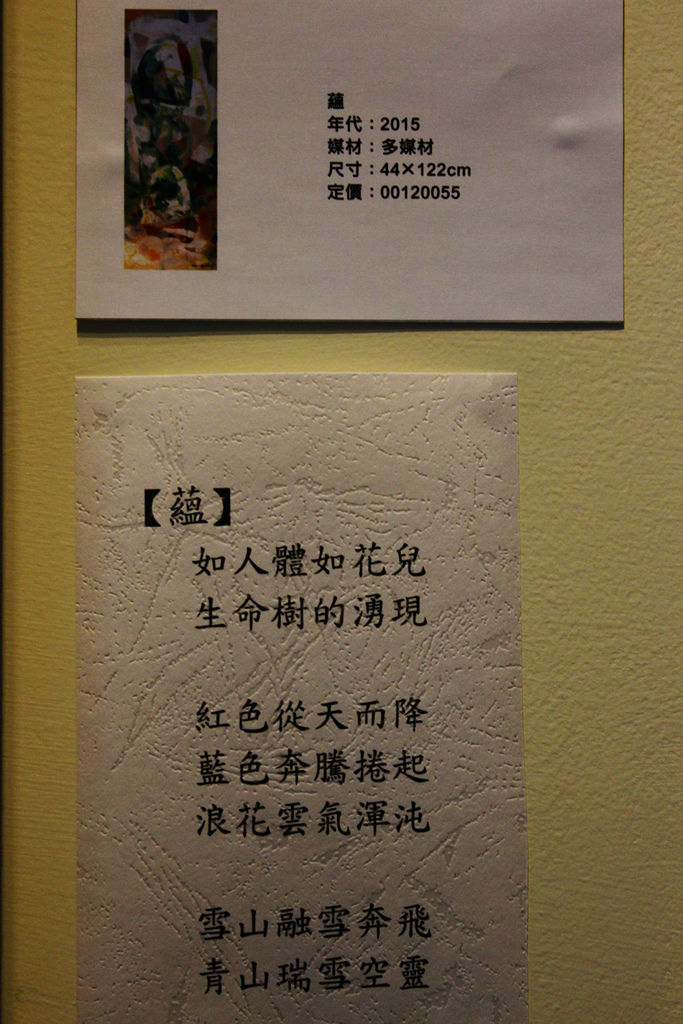 蘊
年代：2015
媒材：多媒材
尺寸：44×122cm
定價：00120055
【蘊】
如人體如花兒
生命樹的湧現
紅色從天而降
藍色奔騰捲起
浪花雲氣渾沌
雪山融雪奔飛
青山瑞雪空靈